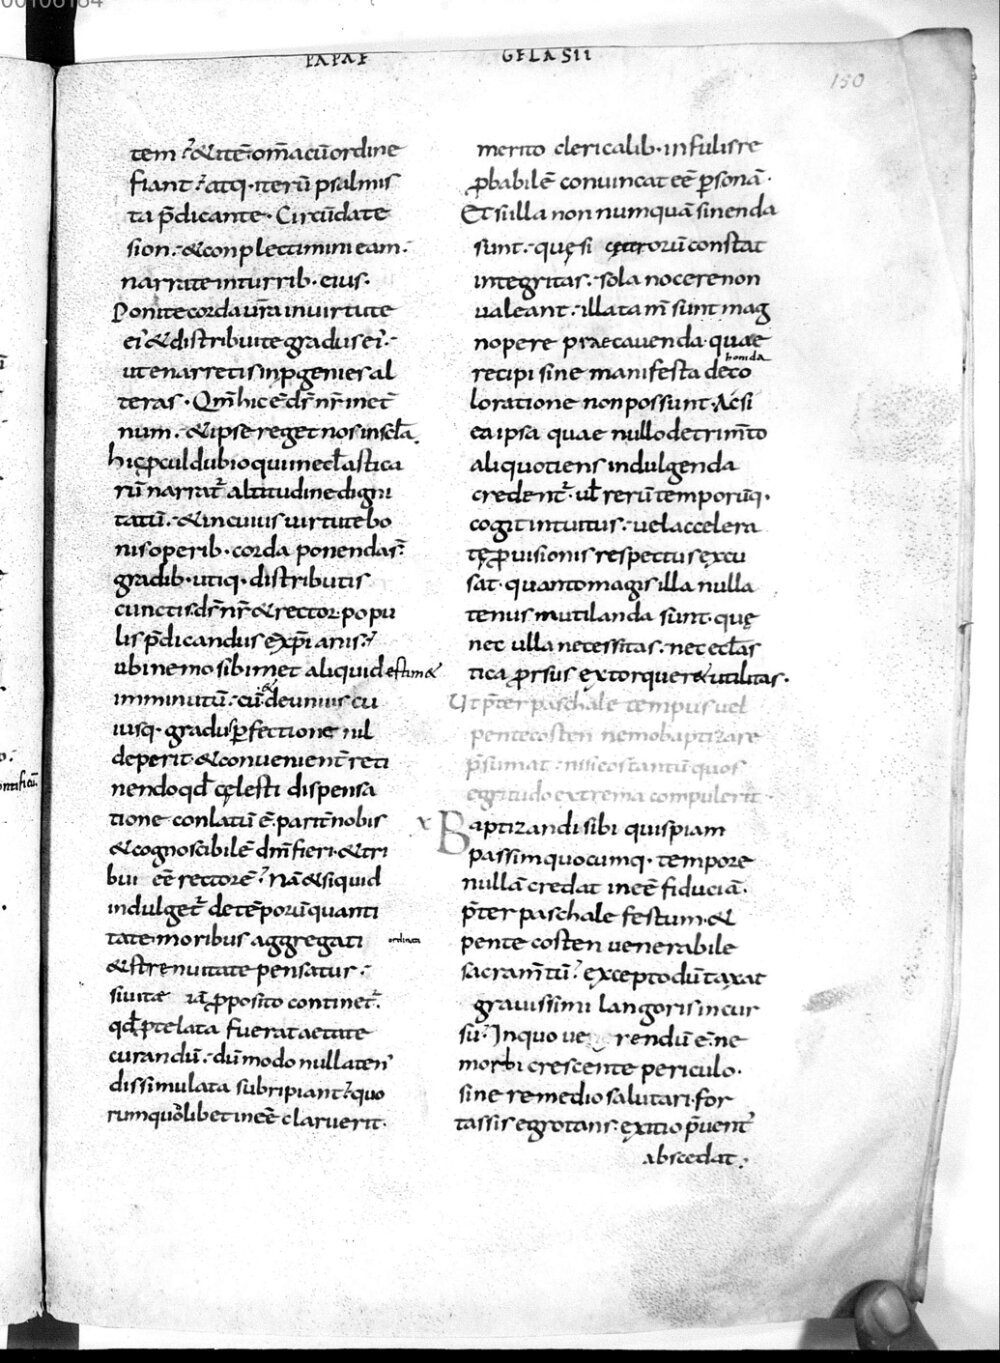 00106184
PAPAE GELASII
150
tem?&itē·om̄acūordine
fiant?atq·iterū psalmis
ta p̄dicante· Circūdate
sion·&conplectimini eam·
narrate inturrib·eius·
Ponitecordaur̄ainuirtute
ei'&distribuite gradusei'·
utenarretisinp̄geniesal
teras·Qm̄hicēd̄s n̄r inet̄
num·&ipse reget nosinsc̄la·
hiçp̄culdubioquiineccl̄astica
rū narrat̄ altitudinedigni
tatū·&incuius uirtutebo
nisoperib·corda ponendas̄
gradib·utiq·distributis
cunctisd̄s n̄r&rector popu
lis p̄dicandus exp̄ianis?
ubinemosibimet aliquidestim&
imminutū·cū deunius cu
iusq·gradusp̄fectione nil
deperit·&conuenient̄reti
nendoqd̄ cęlesti dispensa
tione conlatū ē·parit̄nobis
&cognoscibilē dn̄m fieri·&tri
bui eē rectorē? Nā&siquid
indulget̄ detēporūquanti
tate·moribus aggregati
ordinata
&strenuitate pensatur·
siuitæ iā p̄posito continet̄·
qd̄ p̄telata fuerataetate
curandū·dūmodo nullaten'
dissimulata subripiant?quo
rumquōlibetineē claruerit·
merito clericalib·infulisre
p̄babilē conuincateē p̄sonā·
Etsiilla non numquā sinenda
sunt·quęsi cęterorū constat
integritas·sola nocerenon
ualeant·illatam̄ sunt mag
nopere praecauenda·quae
recipi sine manifesta deco
honda
loratione nonpossunt·Acsi
eaipsa quae nullodetrim̄to
aliquotiens indulgenda
credent̄·ul̄ rerū temporūq·
cogit intuitus·uelaccelera
tęp̄uisionis respectus excu
sat·quantomagisilla nulla
tenus mutilanda sunt·quę
nec ulla necessitas·nececcl̄as
tica p̄rsus extorquet&utilitas·
Ut p̄ter paschale tempus uel
pentecosten nemobaptizare
p̄sumat·nisicostantū quos
egritudo extrema compulerit·
x Baptizandi sibi quispiam
passim quocumq·tempore
nullā credat ineē fiduciā·
p̄ter paschale festum·&
pente costen uenerabile
sacram̄tū? exceptodūtaxat
grauissimi langoris incur
su? Inquo ue rendū ē·ne
morbi crescente periculo·
sine remedio salutari·for
tassis egrotans·exitio p̄uent'
abscedat·